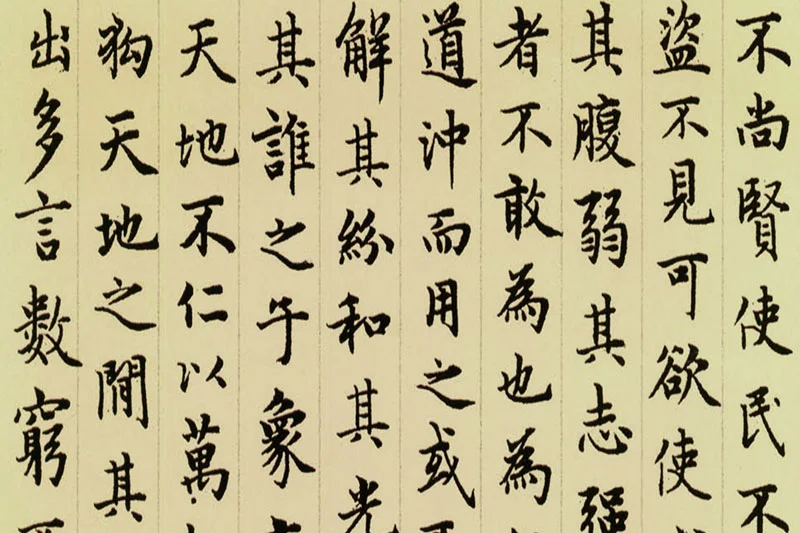 不尚賢使民不
盜不見可欲使
其腹弱其志強
者不敢為也為
道沖而用之或
解其紛和其光
其誰之子象
天地不仁以萬
狗天地之間其
出多言數窮